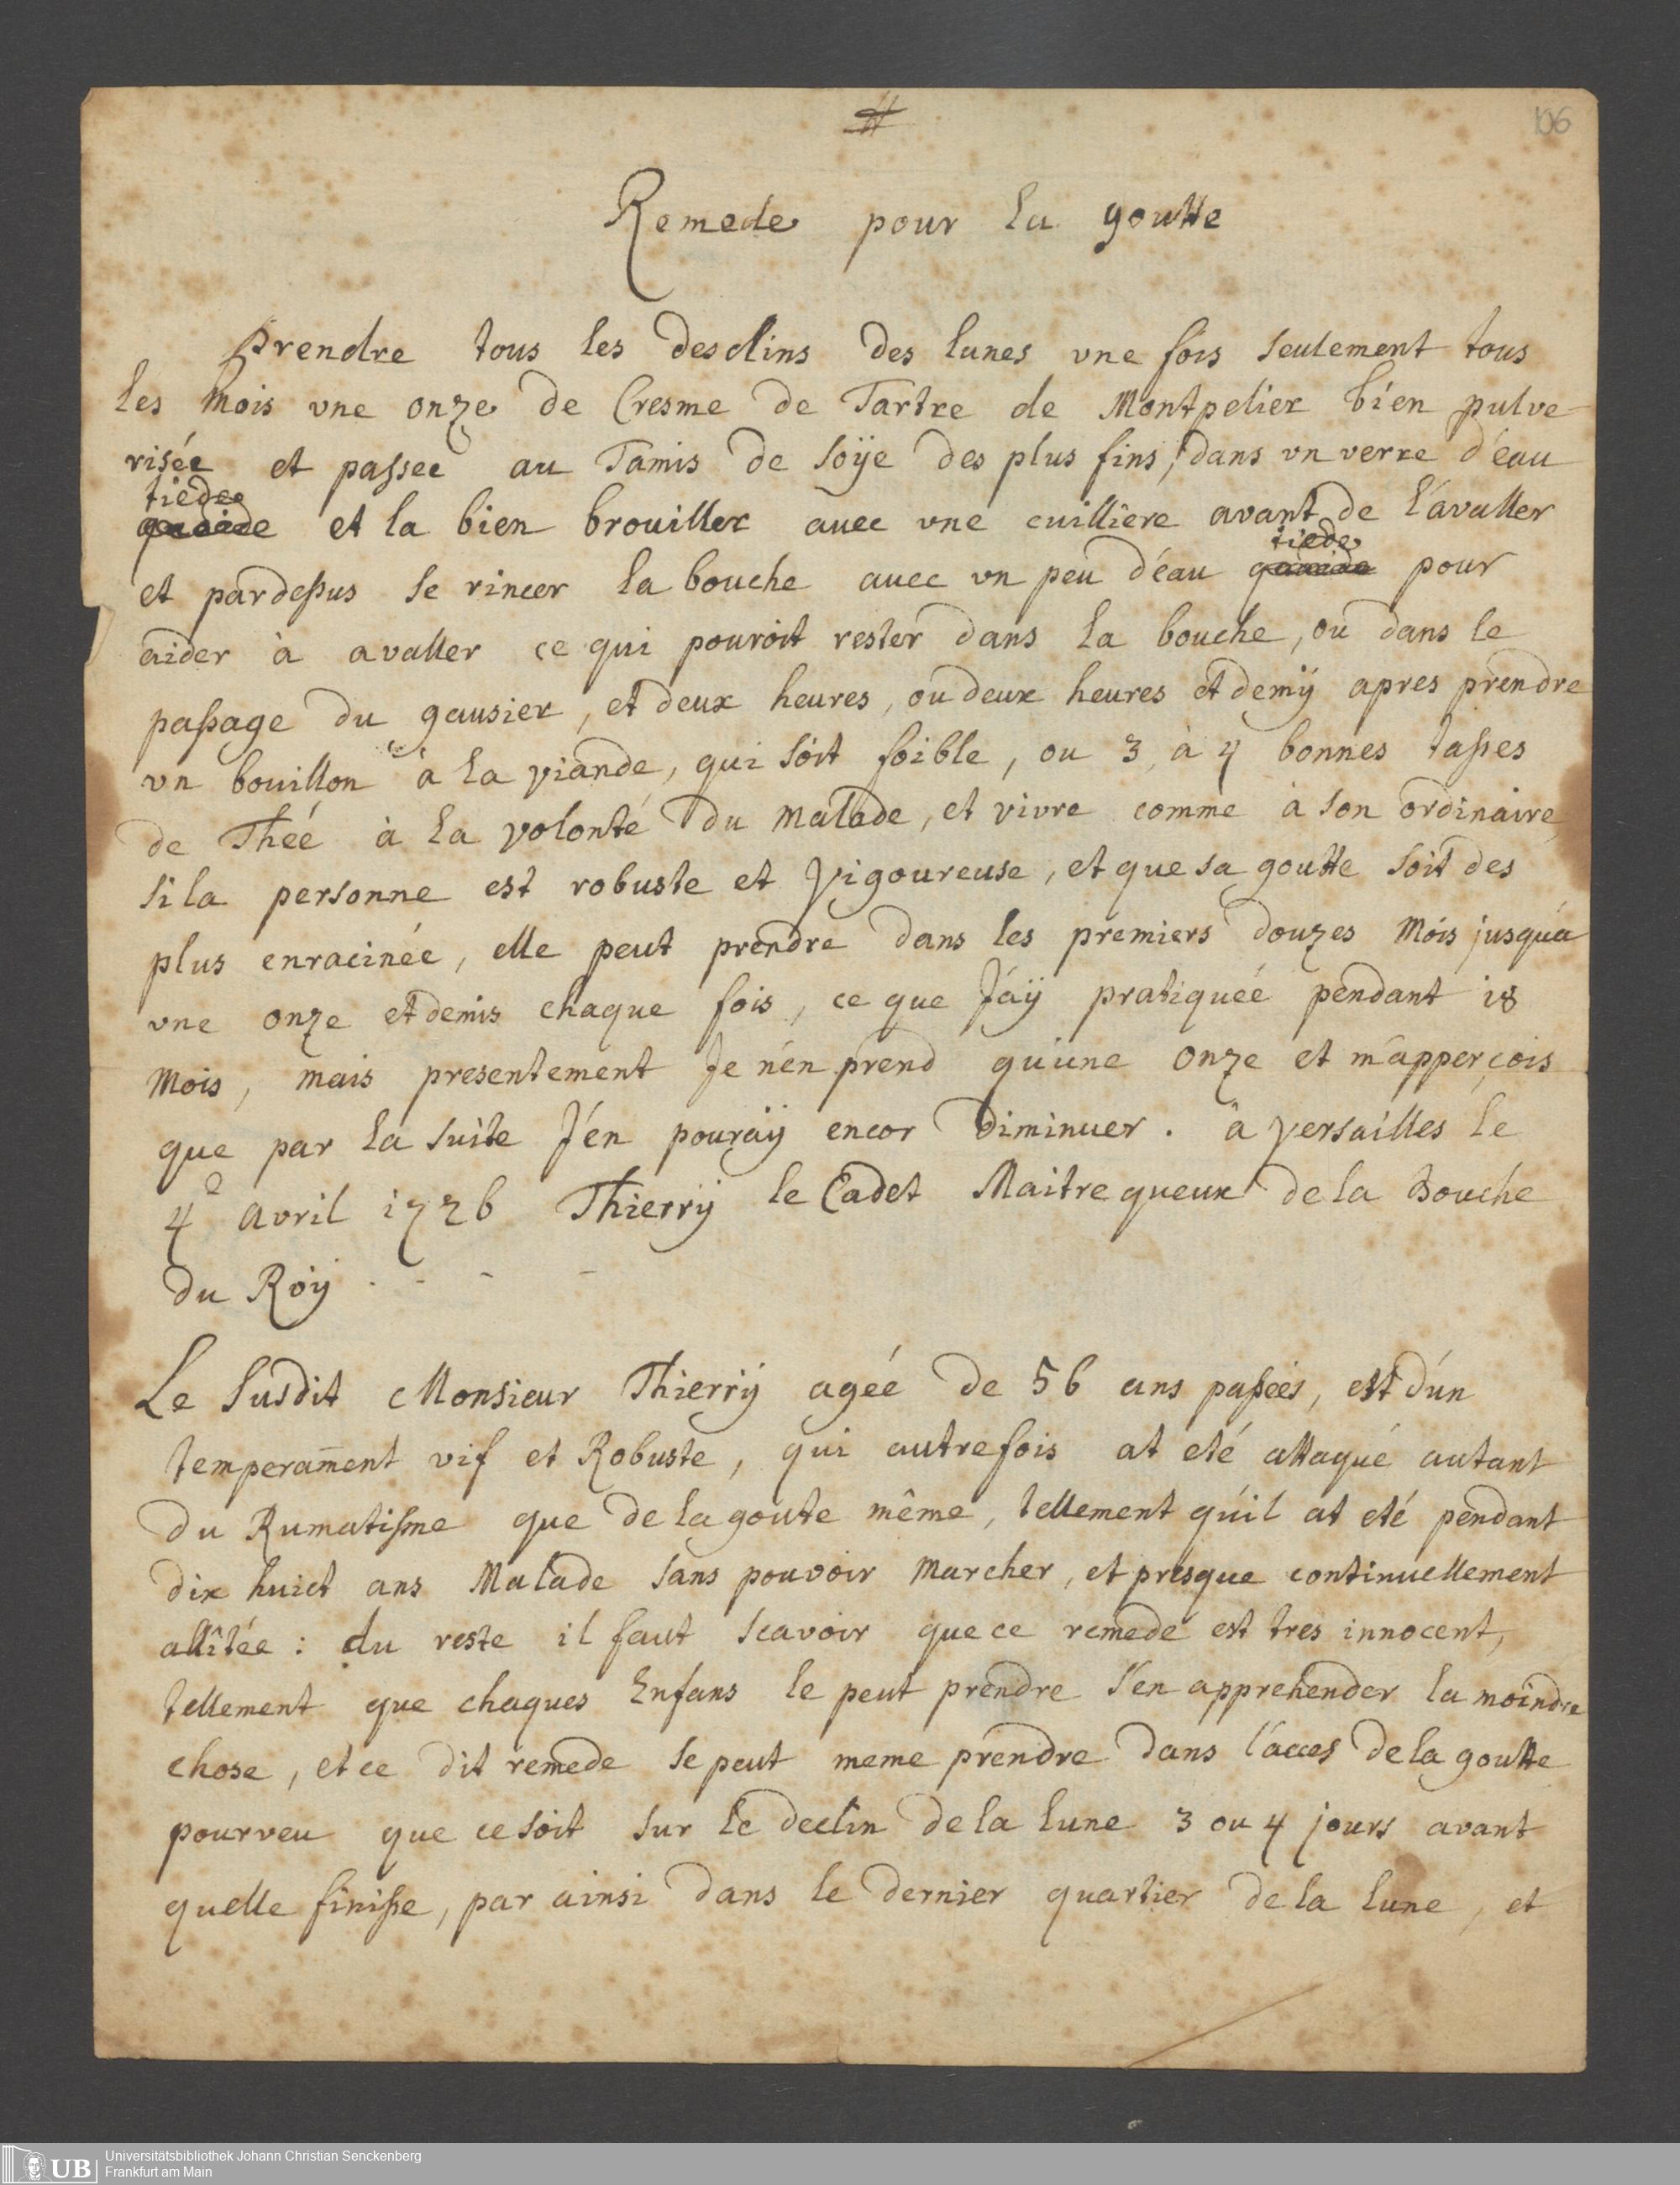 106
Remede pour la goutte
Prendre tous les desclins des lunes vne fois seulement tous
les Mois vne onze de Cresme de Tartre de Montpelier bien pulve-
risée et passee au Tamis de soÿe des plus fins, dans vn verre d'éau
tiede
et la bien brouiller auec vne cuilliere avant de l'avaller
tiede
et pardessus se rincer la bouche auec vn peu d'éau pour
aider à avaller ce qui pouroit rester dans la bouche, ou dans le
passage du gausier, et deux heures, ou deux heures et demÿ apres prendre
vn bouillon à la viande, qui soit foible, ou 3, à 4 bonnes tasses
de Theé à la volonté du Malade, et vivre comme à son ordinaire,
si la personne est robuste et vigoureuse, et que sa goutte soit des
plus enracinée, elle peut prendre dans les premiers douzes Mois jusqu'a
vne onze et demis chaque fois, ce que J'áÿ pratiqueé pendant 18
Mois, mais presentement Je n'én prend qu'une onze et m'apperçois
que par la suite J'én pouraÿ encor Diminuer. à Versailles le
4e avril 1726 Thierrÿ le Cadet Maitre queux de la Bouche
du Roÿ . - - -
Le Susdit Monsieur Thierrÿ ageé de 56 ans passeés, est d'ún
temperam̄ent vif et Robuste, qui autrefois at eté attaqué autant
du Rumatisme que de la goute même, tellement qu'il at eté pendant
dix huict ans Malade sans pouvoir Marcher, et presque continuellement
allîtée : du reste il faut scavoir que ce remede est tres innocent,
tellement que chaques Enfans le peut prendre s'en apprehender la moindre
chose, et ce dit remede se peut meme prendre dans l'acces de la goutte
pourveu que ce soit sur le declin de la lune 3 ou 4 jours avant
quelle finisse, par ainsi dans le dernier quartier de la lune, et
UB
Universitätsbibliothek Johann Christian Senckenberg
Frankfurt am Main